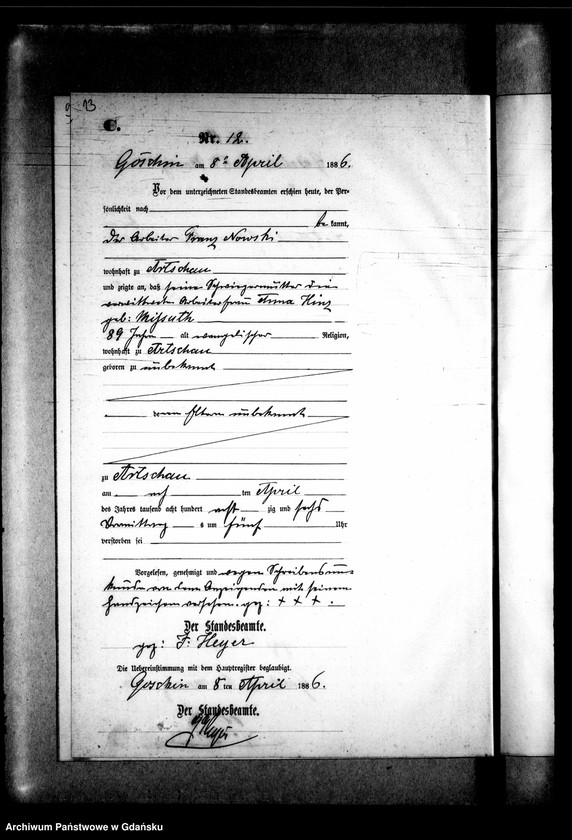 13
C.
Nr. 12.
Göschin am 8ten April 1886.
Vor dem unterzeichneten Standesbeamten erschien heute, der Per-
sönlichkeit nach
be kannt,
der Arbeiter Franz Nowski
wohnhaft zu Artschau
und zeigte an, daß seine Schwiegermutter die
verwittwete Arbeiterfrau Anna Hinz
geb:
89 Jahre alt evangelischer Religion,
wohnhaft zu Artschau
geboren zu unbekannt
deren Eltern unbekannt
zu Artschau
am ten April
des Jahres tausend acht hundert acht zig und sechs
Vormittags um fünf Uhr
verstorben sei
Vorgelesen, genehmigt und wegen Schreibensun-
kunde von dem Anzeigenden mit seinem
Handzeichen versehen. gez: + + + .
Der Standesbeamte.
gez: F. Heyer
Die Uebereinstimmung mit dem Hauptregister beglaubigt.
Goschin am 8 ten April 1886.
Der Standesbeamte.
Heyer
Archiwum Państwowe w Gdańsku